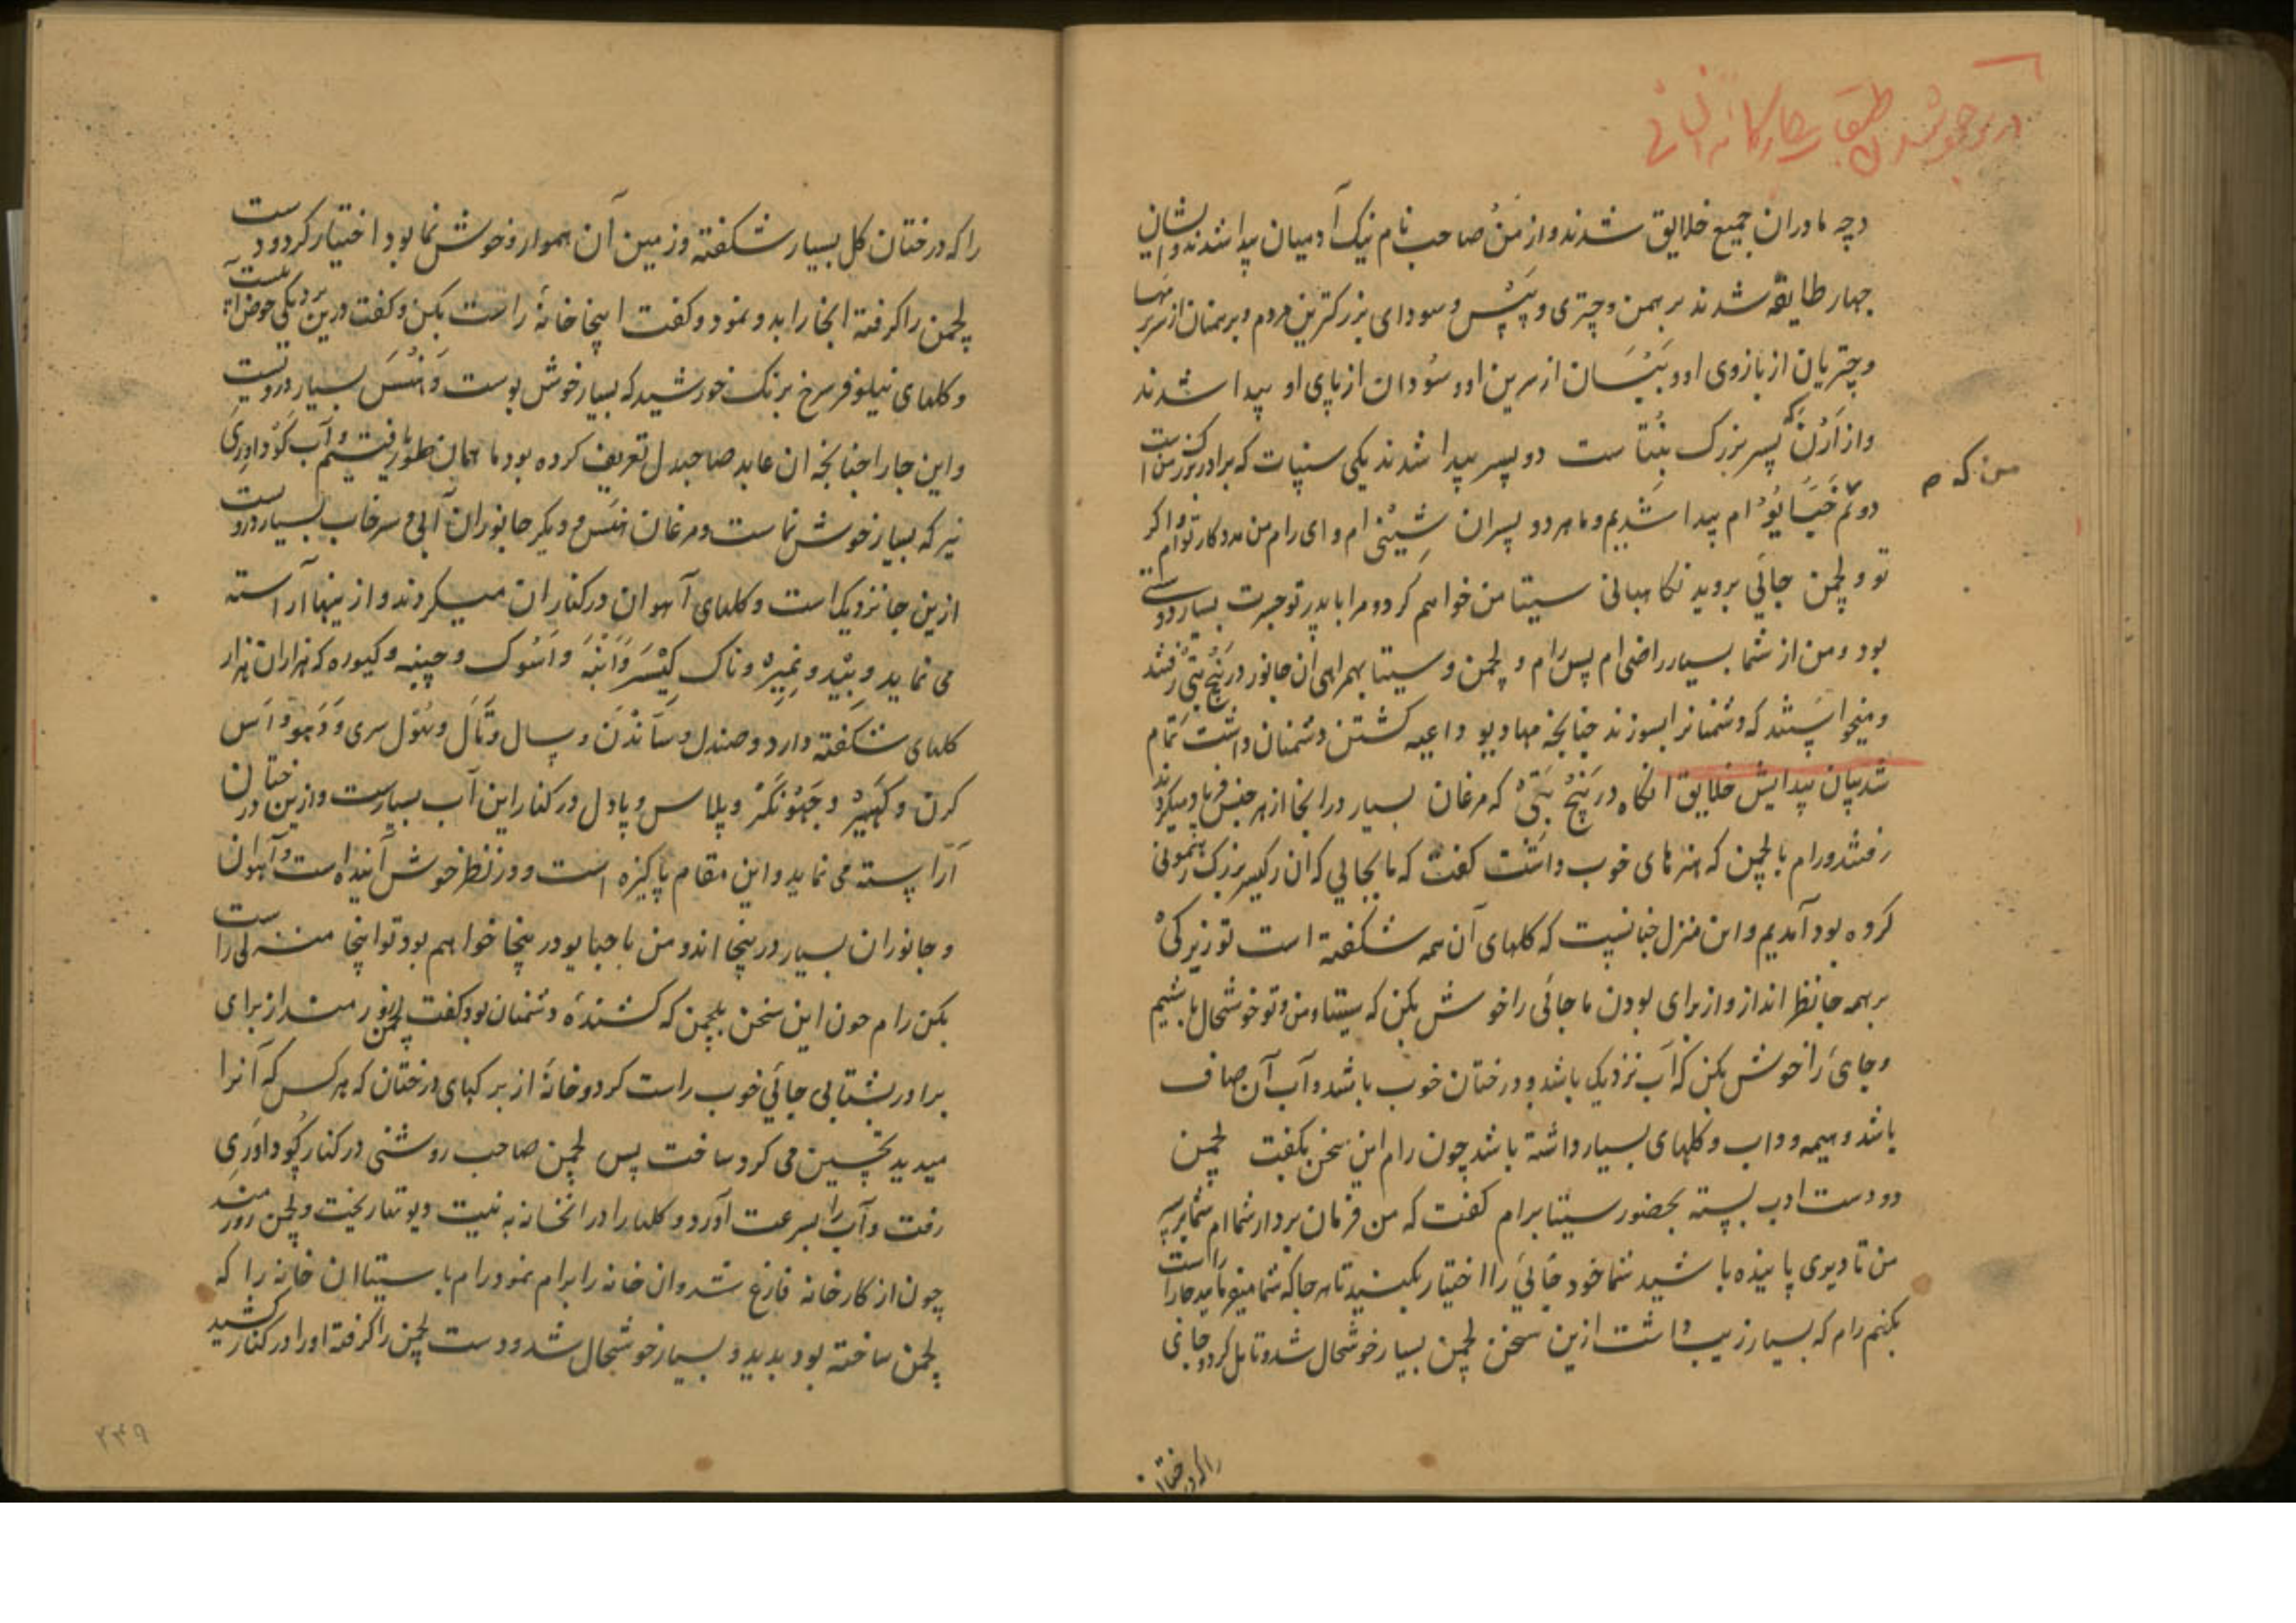 در موجود شدن طبقات چهارگانه انسانی
دچه مادران جمیع خلایق شدند و از من صاحب نام نیک آدمیان پیدا شدند و ایشان
چهار طایفه شدند برهمن و چتری و بیس و سودای بزرگترین مردم و برهمنان از سر برمها
و چتریان از بازوی او و بیسان از سرین او و سودان از پای او پیدا شدند
و از ارن که پسر بزرگ بنتا ست دو پسر پیدا شدند یکی سنپات که برادر بزرگ من است
من که
دوئم جتایو ام پیدا شدیم و ما هر دو پسران شینی ام و ای رام من مددکار توام و اگر
تو و لچمن جائی بروید نکاهبانی سیتا من خواهم کرد و مرا با پدر تو جسرت بسیار دوستی
بود و من از شما بسیار راضی ام پس رام و لچمن و سیتا بهمراهی ان جانور در پنچ بتی رفتند
و میخواستند که دشمنانرا بسوزند چنانچه مهادیو داعیه کشتن دشمنان داشت تمام
شد بیان پیدایش خلایق انکاه در پنچ بتی که مرغان بسیار درانجا از هر جنس فریاد میکردند
رفتند و رام با لچمن که هنرهای خوب داشت کفت که ما بجایی که ان رکیسر بزرک رهنمونی
کرده بود آمدیم و این منزل جانیست که کلهای آن همه شکفته است تو زیرکی
بر همه جا نظر انداز و از برای بودن ما جائی را خوش بکن که سیتا و من و تو خوشحال باشیم
و جای را خوش بکن که آب نزدیک باشد و درختان خوب باشد و آب آن صاف
باشد و هیمه و داب و کلهای بسیار داشته باشد چون رام این سخن بکفت لچمن
دو دست ادب بسته بحضور سیتا برام کفت که من فرمان بردار شما ام شما بر سر
من تا دیری پاینده باشید شما خود جائی را اختیار بکنید تا هر جا که شما میفرمایید جا را راست
بکنم رام که بسیار زیب داشت ازین سخن لچمن بسیار خوشحال شد و تامل کرد و جای
را که درختان
را که درختان کل بسیار شکفته و زمین آن هموار و خوش نما بود اختیار کرد و دست
لچمن را کرفته انجا را بدو نمود و کفت اینجا خانه راست بکن و کفت درین نزدیکی حوض است
و کلهای نیلوفر سرخ برنک خورشید که بسیار خوش بوست و هنس بسیار دروست
و این جا را چنانچه ان عابد صاحبدل تعریف کرده بود ما همان طور یافتیم و آب کوداوری
نیز که بسیار خوش نماست و مرغان هنس و دیکر جانوران آبی و سرخاب بسیار دروست
ازین جا نزدیک است و کلهای آهوان در کنار ان میکردند و از اینها آراسته
می نماید و بید و نمیره و ناک کیسر و انبه و اسوک و چنپه و کیوره که هزاران هزار
کلهای شکفته دارد و صندل و ساندن و سال و تال و مول سری و دهو و اس
کرن و کهیر و چهونکر و پلاس و پادل در کنار این آب بسیارست و ازین درختان
آراسته می نماید و این مقام پاکیزه است و در نظر خوش آینده است و آهوان
و جانوران بسیار درینجا اند و من با جتایو درینجا خواهم بود تو اینجا منزلی راست
بکن رام چون این سخن بلچمن که کشنده دشمنان بود بکفت لچمن زورمند از برای
برادر بشتابی جائی خوب راست کرد و خانه از برکهای درختان که هر کس که آنرا
میدید تحسین می کرد ساخت پس لچمن صاحب روشنی در کنار کوداوری
رفت و آب را بسرعت آورد و کلها را در انخانه به نیت دیوتها ریخت و لچمن زورمند
چون از کار خانه فارغ شد و ان خانه را برام نمود رام با سیتا ان خانه را که
لچمن ساخته بود بدید و بسیار خوشحال شد و دست لچمن را کرفته او را در کنار کشید
۲۴۹